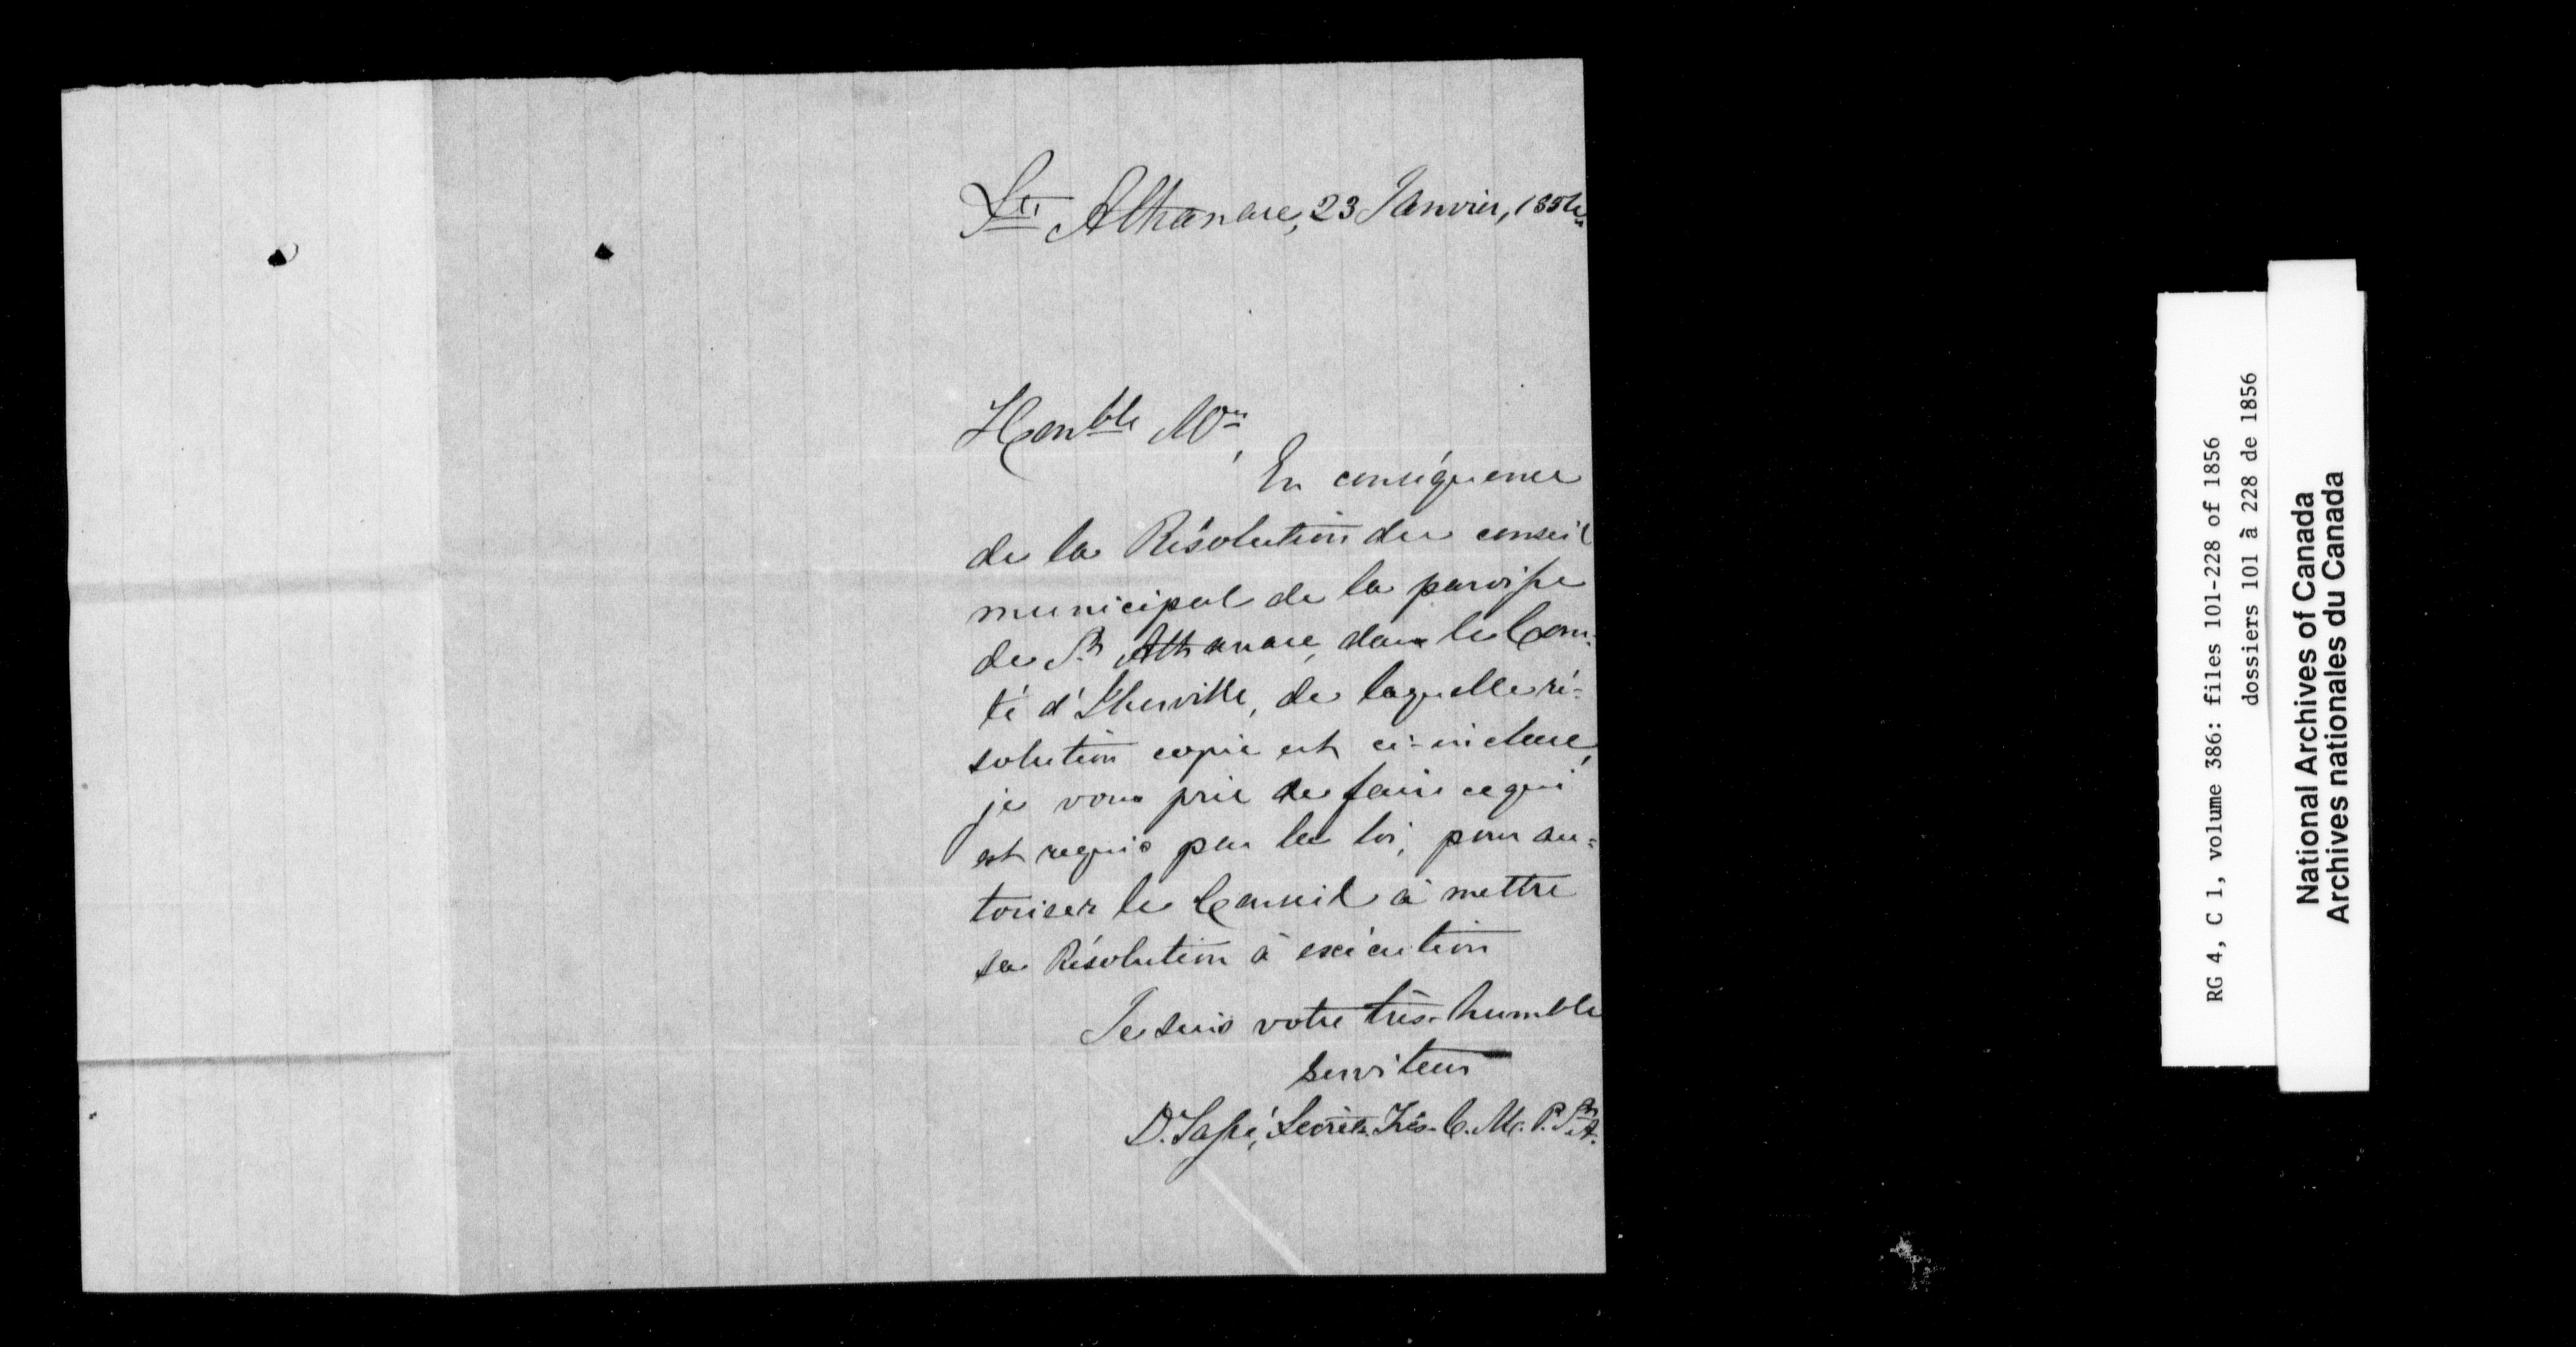 St Athanase, 23 Janvier, 1856
Honble Mr,
En conséquence
de la Résolution du conseil
municipal de la paroisse
de St Athanase, dans le Com=
té d'Iberville, de laquelle ré=
solution copie est ci-incluse,
je vous prie de faire ce qui
est requis par la loi, pour au=
toriser le Conseil à mettre
sa Résolution à exécution
Je suis votre très-humble
serviteur
Secrét. Trés. C. M. P. St A.
RG 4, C 1, volume 386: files 101-228 of 1856
dossiers 101 à 228 de 1856
National Archives of Canada
Archives nationales du Canada